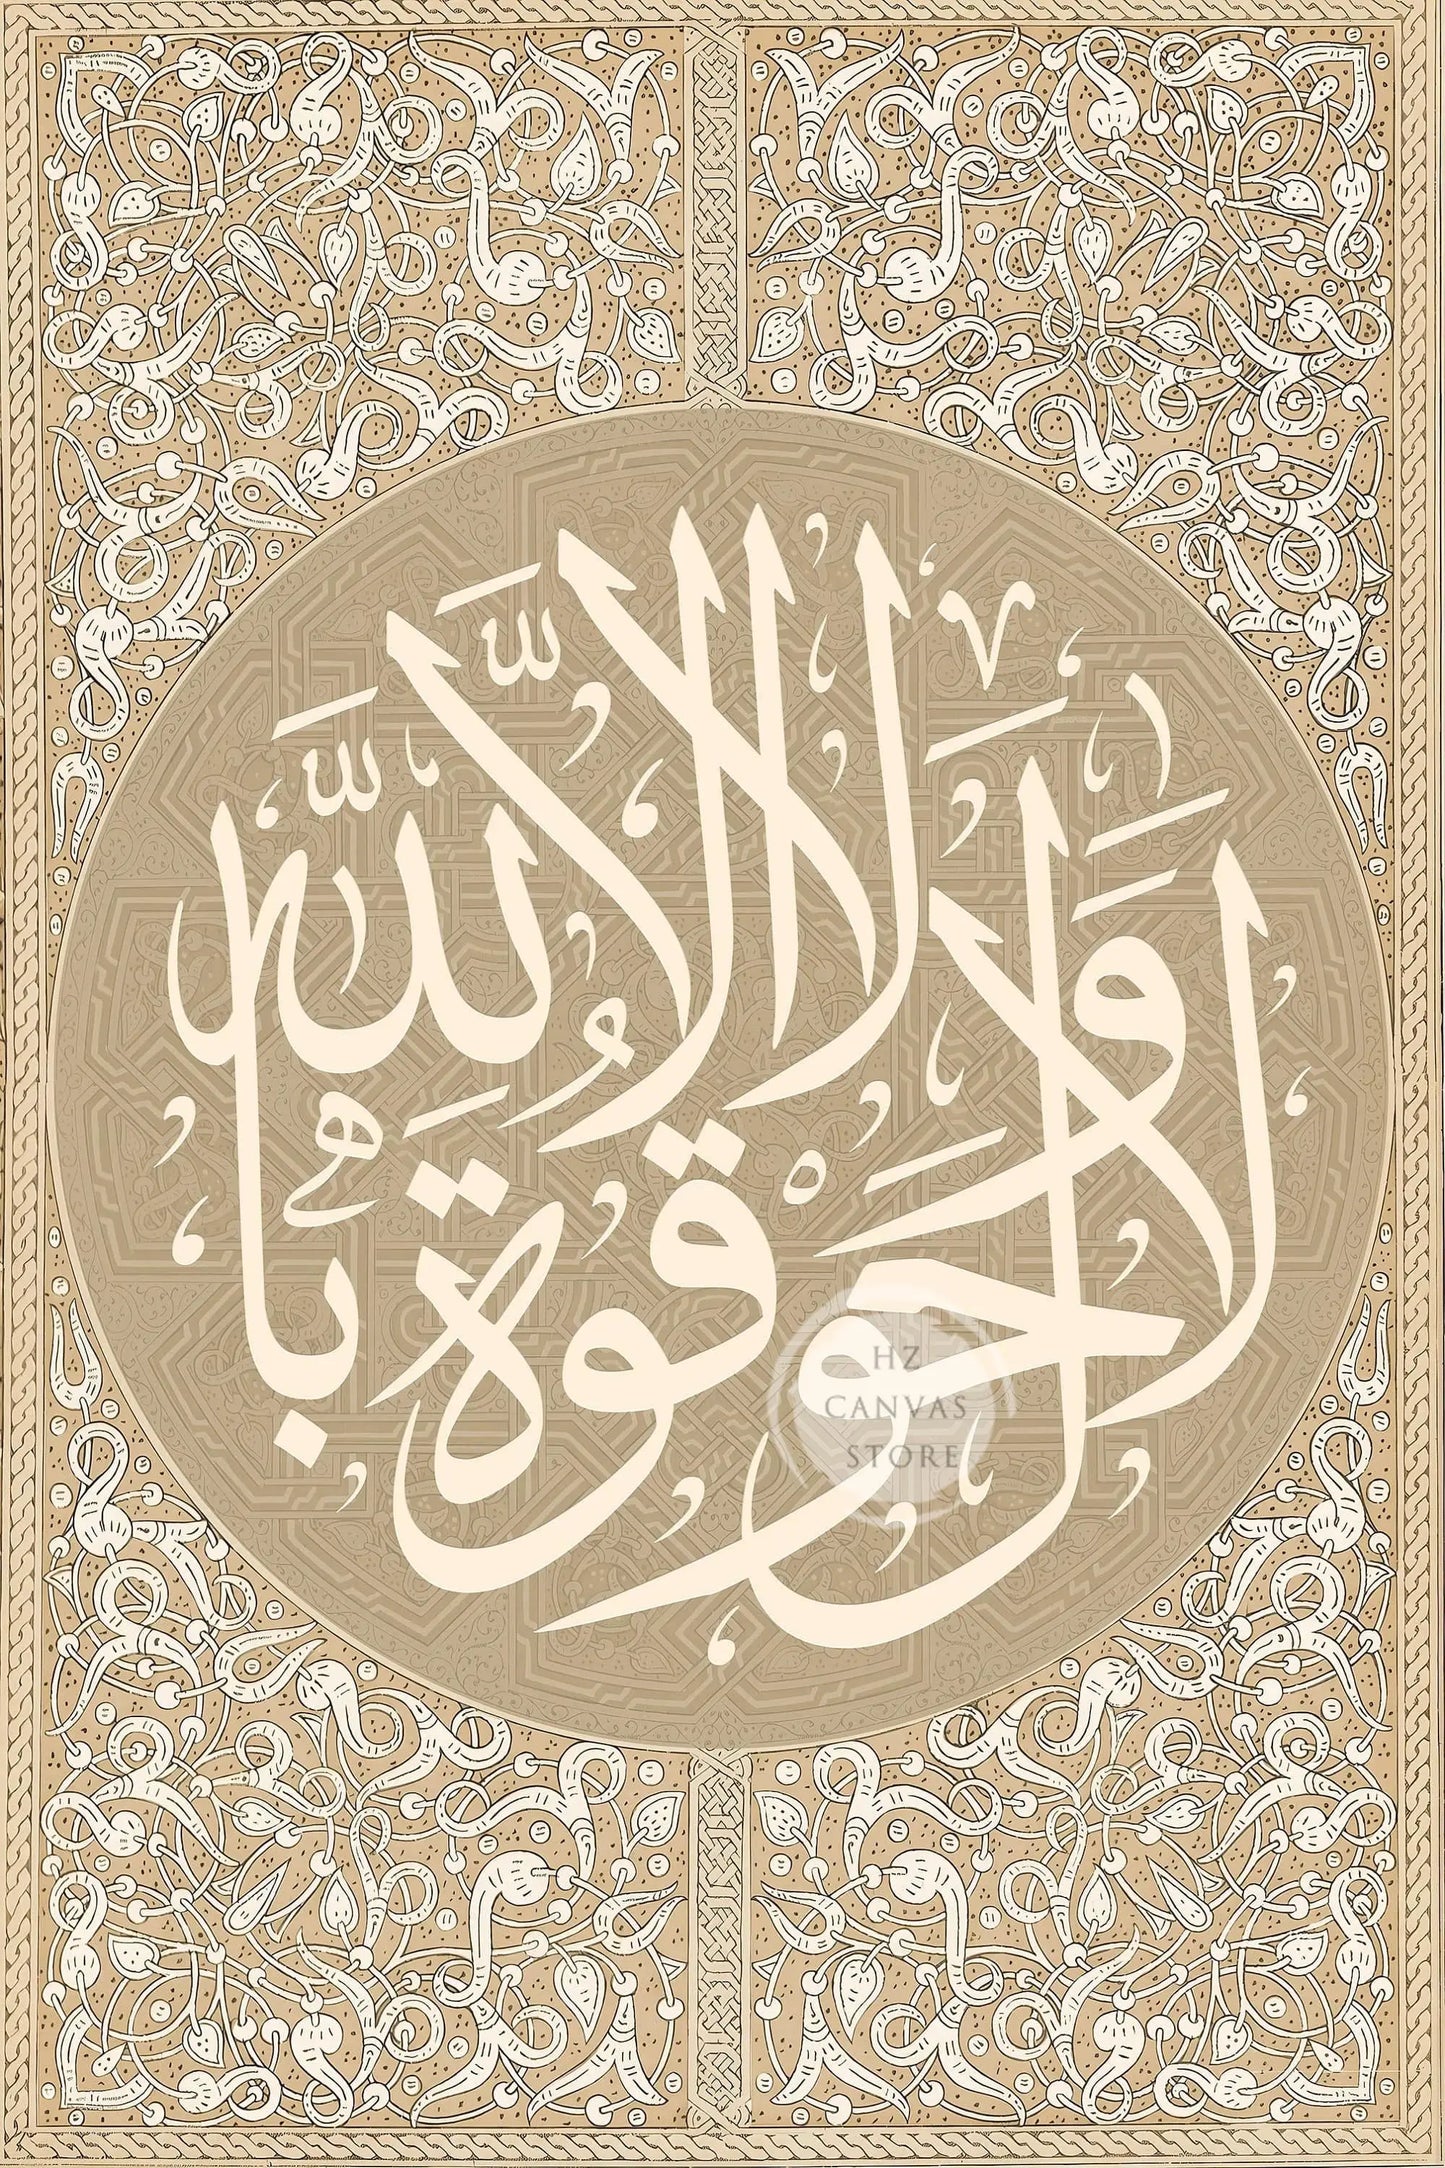 لا حول ولا قوة الا بالله
HZ
CANVAS
STORE